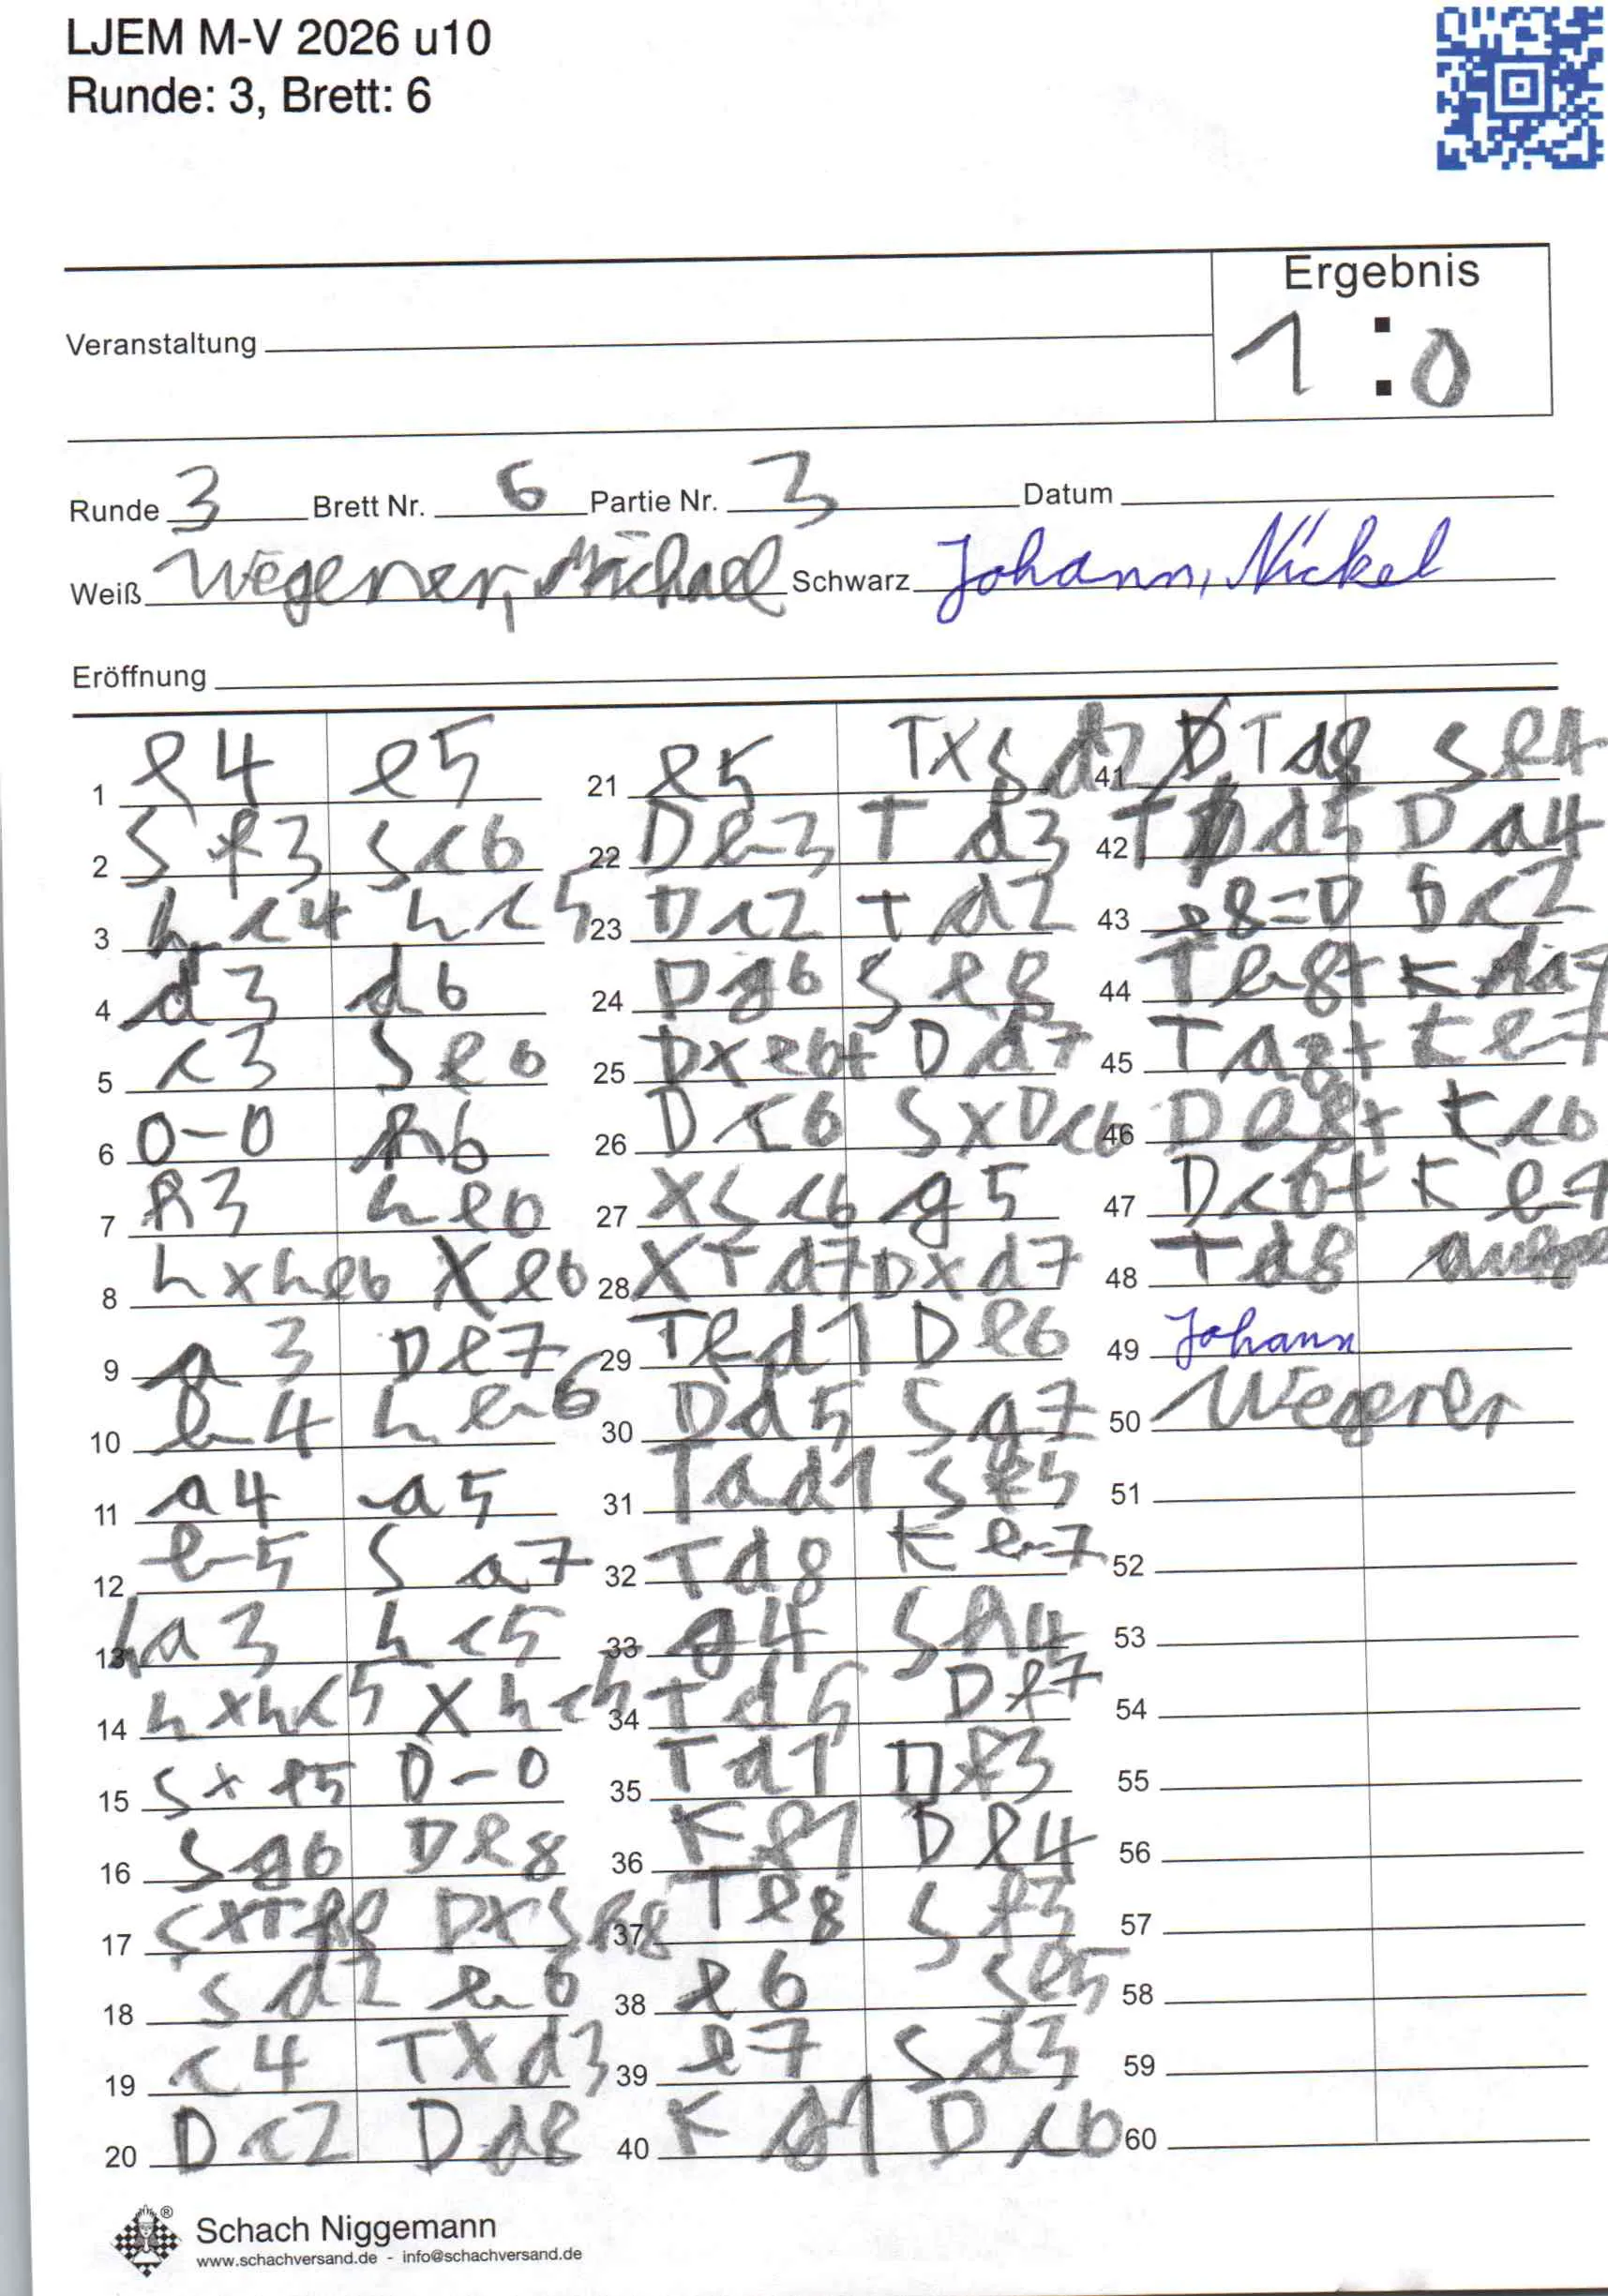 LJEM M-V 2026 u10
Runde: 3, Brett: 6
Ergebnis
1 : 0
Veranstaltung
Runde 3 Brett Nr. 6 Partie Nr. 3 Datum
Weiß Wegener, Michael Schwarz Johann, Nickel
Eröffnung
1 e4 e5
2 Sf3 Sc6
3 Lc4 Lc5
4 d3 d6
5 c3 Se6
6 0-0 h6
7 h3 Le6
8 LxLe6 Xe6
9 a3 De7
10 b4 Lb6
11 a4 a5
12 b5 Sa7
13 La3 Lc5
14 LxLc5 XLc5
15 Sxe5 0-0
16 Sg6 De8
17 SxTf8 DxSf8
18 Sd2 b6
19 c4 TXd3
20 Dc2 Dd8
21 e5 TXSd2
22 Db3 Td3
23 Dc2 Td2
24 Dg6 Se8
25 Dxe6+ Dd7
26 Dc6 SXDc6
27 XSc6 g5
28 XTd7 DXd7
29 Tfd1 De6
30 Dd5 Sg7
31 Tad1 Sf5
32 Td8 Kb7
33 g4 Sh4
34 Td5 De7
35 Td1 Df3
36 Kf1 De4
37 Te8 Sf3
38 e6 Se5
39 e7 Sd3
40 Kg1 Dc6
41 Td8 Se4
42 Td5 Da4
43 e8=D Dc2
44 Tb8+ Ka7
45 Ta8+ Kb7
46 Db8+ Kc6
47 Dc6+ Ke7
48 Td8
49 Johann
50 Wegener
51
52
53
54
55
56
57
58
59
60
Schach Niggemann
www.schachversand.de - info@schachversand.de